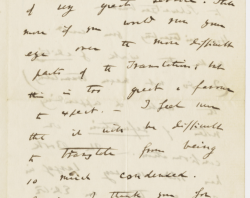 of very great service. Still
more if you would run your
eye over the more difficult
parts of the Translations, but
this is too great a favour
to expect. — I feel sure
that it will be difficult
to translate from being
so much condensed.
I thank you for